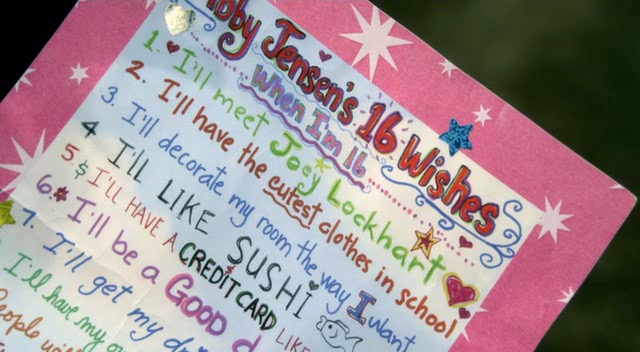 Jensen's 16 Wishes
When I'm 16
1. I'll meet Joey Lockhart
2. I'll have the cutest clothes in school
3. I'll decorate my room the way I want
4 I'LL LIKE SUSHI
5 $ I'LL HAVE A CREDIT CARD LIKE
6. I'll be a GOOD
7. I'll get my
I'll have my
People